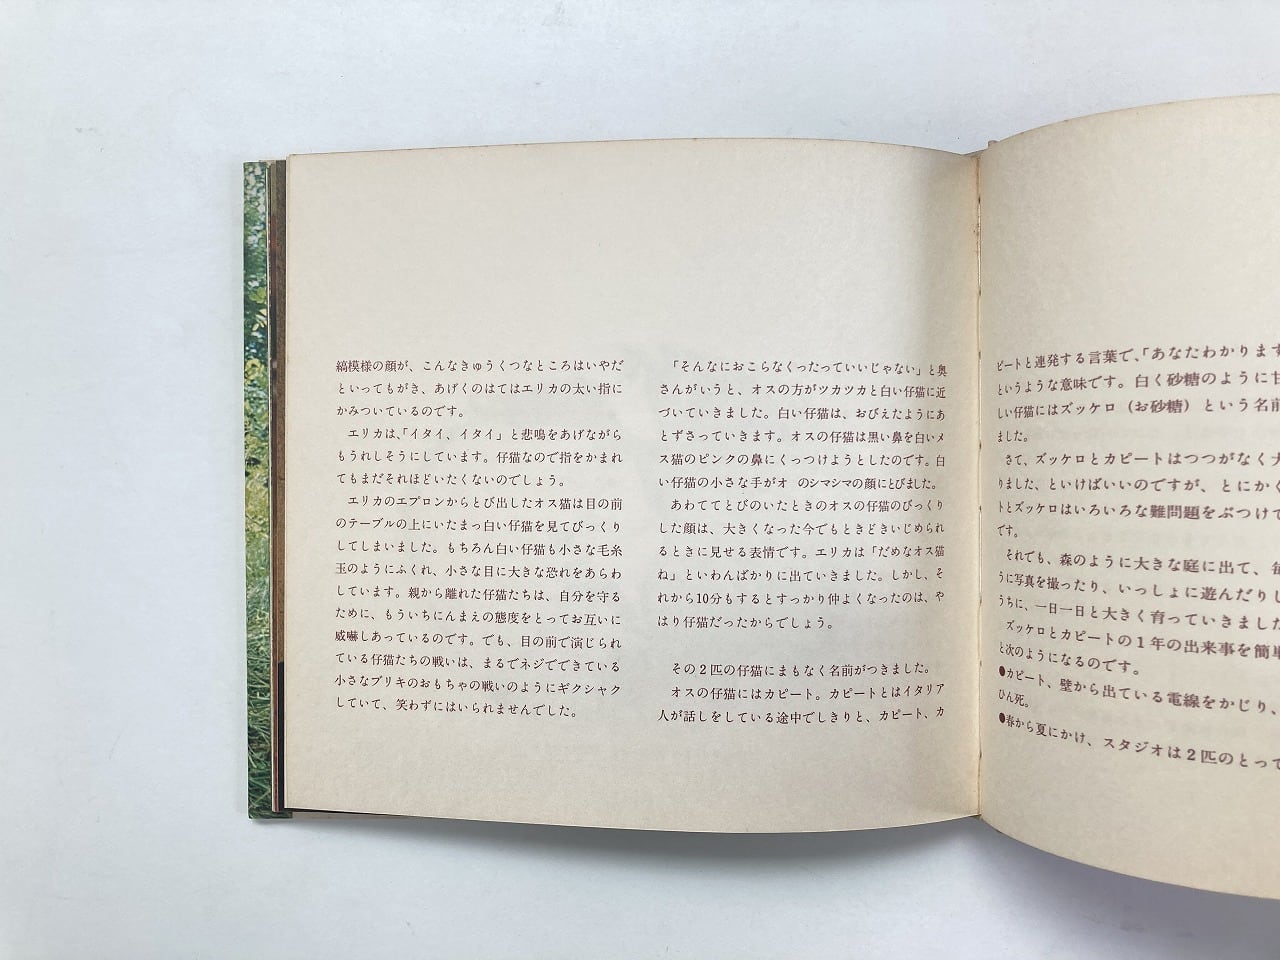 縞模様の顔が、こんなきゅうくつなところはいやだ
といってもがき、あげくのはてはエリカの太い指に
かみついているのです。
エリカは、「イタイ、イタイ」と悲鳴をあげながら
もうれしそうにしています。仔猫なので指をかまれ
てもまだそれほどいたくないのでしょう。
エリカのエプロンからとび出したオス猫は目の前
のテーブルの上にいたまっ白い仔猫を見てびっくり
してしまいました。もちろん白い仔猫も小さな毛糸
玉のようにふくれ、小さな目に大きな恐れをあらわ
しています。親から離れた仔猫たちは、自分を守る
ために、もういちにんまえの態度をとってお互いに
威嚇しあっているのです。でも、目の前で演じられ
ている仔猫たちの戦いは、まるでネジでできている
小さなブリキのおもちゃの戦いのようにギクシャク
していて、笑わずにはいられませんでした。
「そんなにおこらなくったっていいじゃない」と奥
さんがいうと、オスの方がツカツカと白い仔猫に近
づいていきました。白い仔猫は、おびえたようにあ
とずさっていきます。オスの仔猫は黒い鼻を白いメ
ス猫のピンクの鼻にくっつけようとしたのです。白
い仔猫の小さな手がオ のシマシマの顔にとびました。
あわててとびのいたときのオスの仔猫のびっくり
した顔は、大きくなった今でもときどきいじめられ
るときに見せる表情です。エリカは「だめなオス猫
ね」といわんばかりに出ていきました。しかし、そ
れから10分もするとすっかり仲よくなったのは、や
はり仔猫だったからでしょう。
その２匹の仔猫にまもなく名前がつきました。
オスの仔猫にはカピート。カピートとはイタリア
人が話しをしている途中でしきりと、カピート、カ
ピートと連発する言葉で、「あなたわかります
というような意味です。白く砂糖のように甘
しい仔猫にはズッケロ（お砂糖）という名前
ました。
さて、ズッケロとカピートはつつがなく大
りました、といけばいいのですが、とにかく
トとズッケロはいろいろな難問題をぶつけて
です。
それでも、森のように大きな庭に出て、毎
うに写真を撮ったり、いっしょに遊んだりし
うちに、一日一日と大きく育っていきました
ズッケロとカピートの１年の出来事を簡単
と次のようになるのです。
●カピート、壁から出ている電線をかじり、
ひん死。
●春から夏にかけ、スタジオは２匹のとって